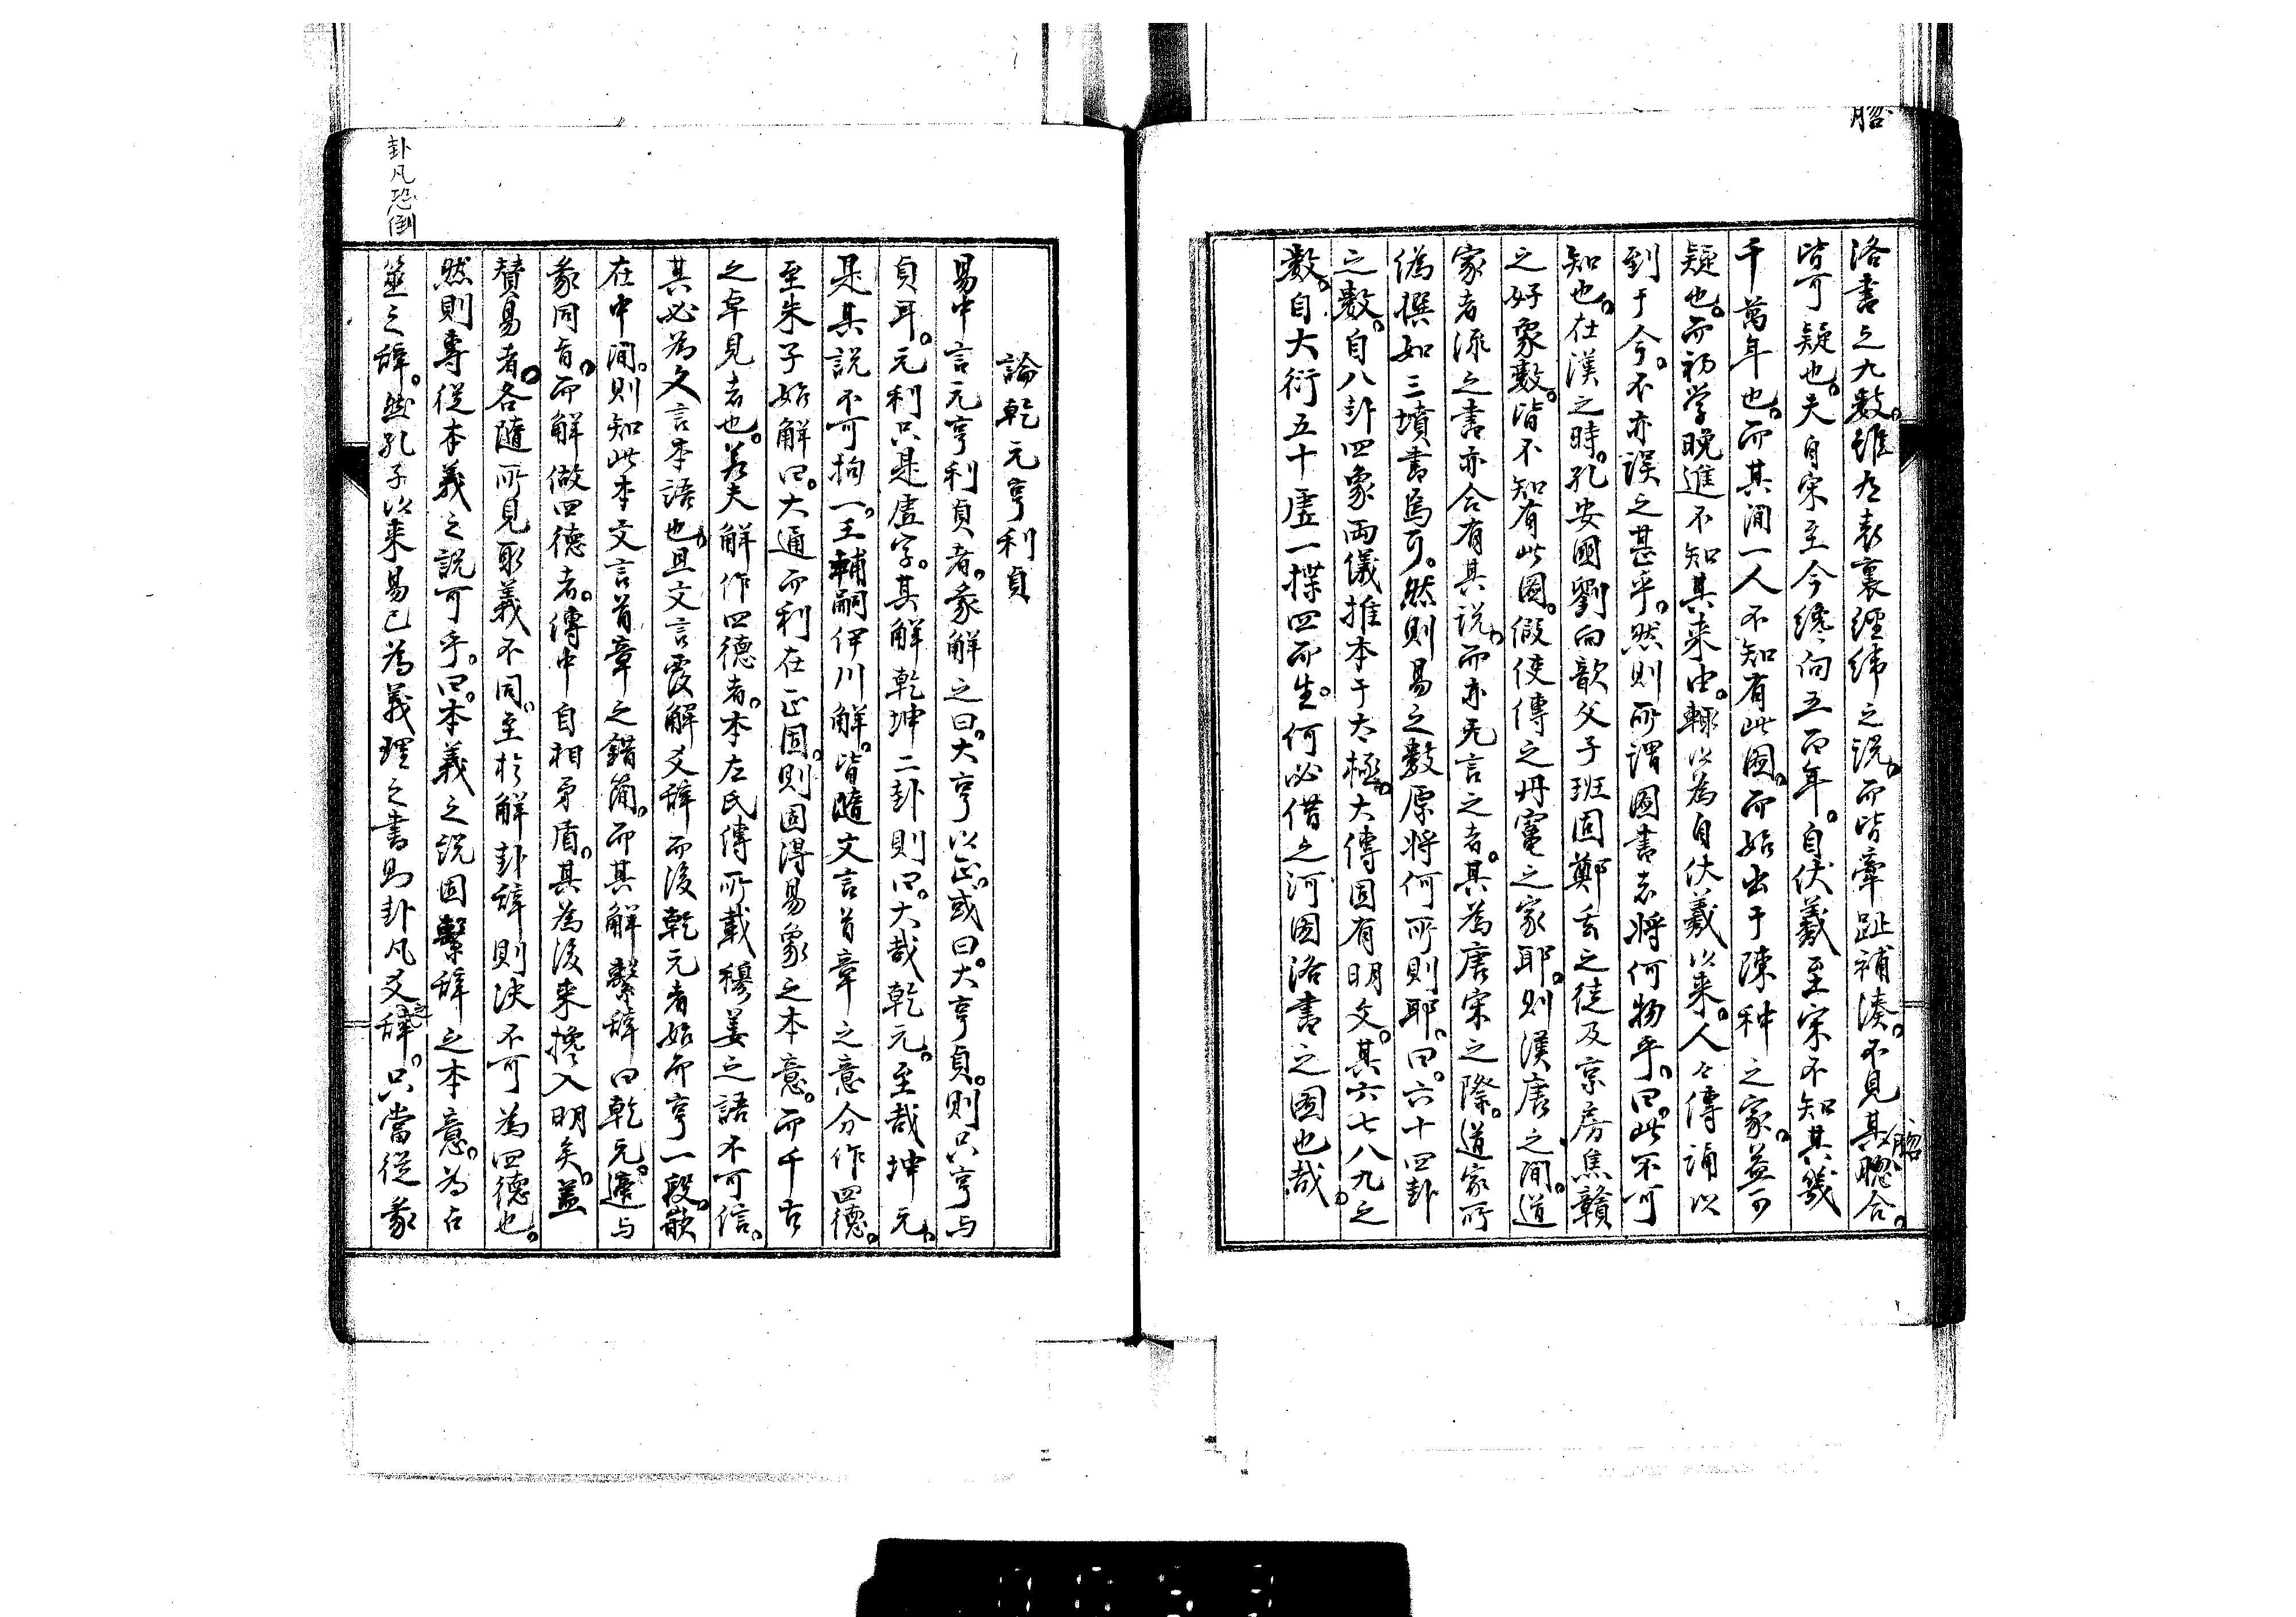 洛書之九数。雖有表裏經緯之説。而皆牽趾補湊。不見其䐇合。
皆可疑也。夫自宋至今纔向五百年。自伏羲至宋不知其幾
千萬年也。而其間一人不知有此圖。而始出于陳种之家。益可
疑也。而初学晚進不知其来由。輙以為自伏羲以来。人々傳誦以
到于今。不亦誤之甚乎。然則所謂圖書者将何物乎。曰。此不可
知也。在漢之時。孔安國劉向歆父子班固鄭玄之徒及京房焦贛
之好象數。皆不知有此圖。假使傳之丹竃之家耶。則漢唐之間。道
家者流之書亦合有其説。而亦无言之者。其為唐宋之際。道家所
偽撰如三墳書焉可。然則易之數原将何所則耶。曰。六十四卦
之數。自八卦四象兩儀推本于太極。大傳固有明文。其六七八九之
數。自大衍五十虚一揲四而生。何必借之河圖洛書之圖也哉。
論乾元亨利貞
易中言元亨利貞者。彖解之曰。大亨以正。或曰。大亨貞。則只亨与
貞耳。元利只是虚字。其解乾坤二卦則曰。大哉乾元。至哉坤元。
是其説不可拘一。王輔嗣伊川解。皆隨文言首章之意分作四德。
至朱子始解曰。大通而利在正固。則固得易彖之本意。而千古
之卓見者也。若夫解作四德者。本左氏傳所載穆姜之語不可信。
其必為文言本語也。且文言覆解爻辞而後乾元者始而亨一段。嵌
在中間。則知此本文言首章之錯簡。而其解繫辞曰乾元。遵与
彖同旨。而解做四德者。傳中自相矛盾。其為後来攙入明矣。蓋
賛易者。各隨所見取義不同。至於解卦辞則決不可為四德也。
然則專從本義之説可乎。曰。本義之説固繫辞之本意。為占
筮之辞。然孔子以来易已為義理之書則卦凡爻之辞。只當從彖
卦凡恐倒